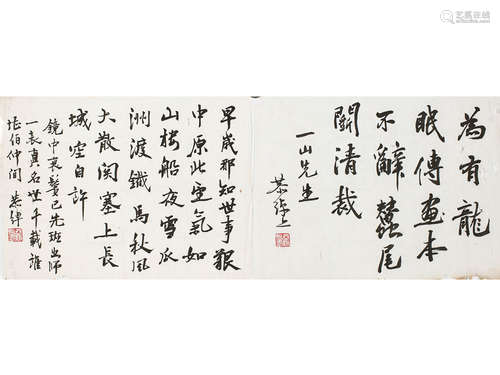 為有龍
眠傳畫本
不辭蠶尾
關清裁
一山先生
恭綽上
早歲那知世事艱
中原北望氣如
山樓船夜雪瓜
洲渡鐵馬秋風
大散關塞上長
城空自許
鏡中衰鬢已先班出師
一表真名世千載誰
堪伯仲間 恭綽